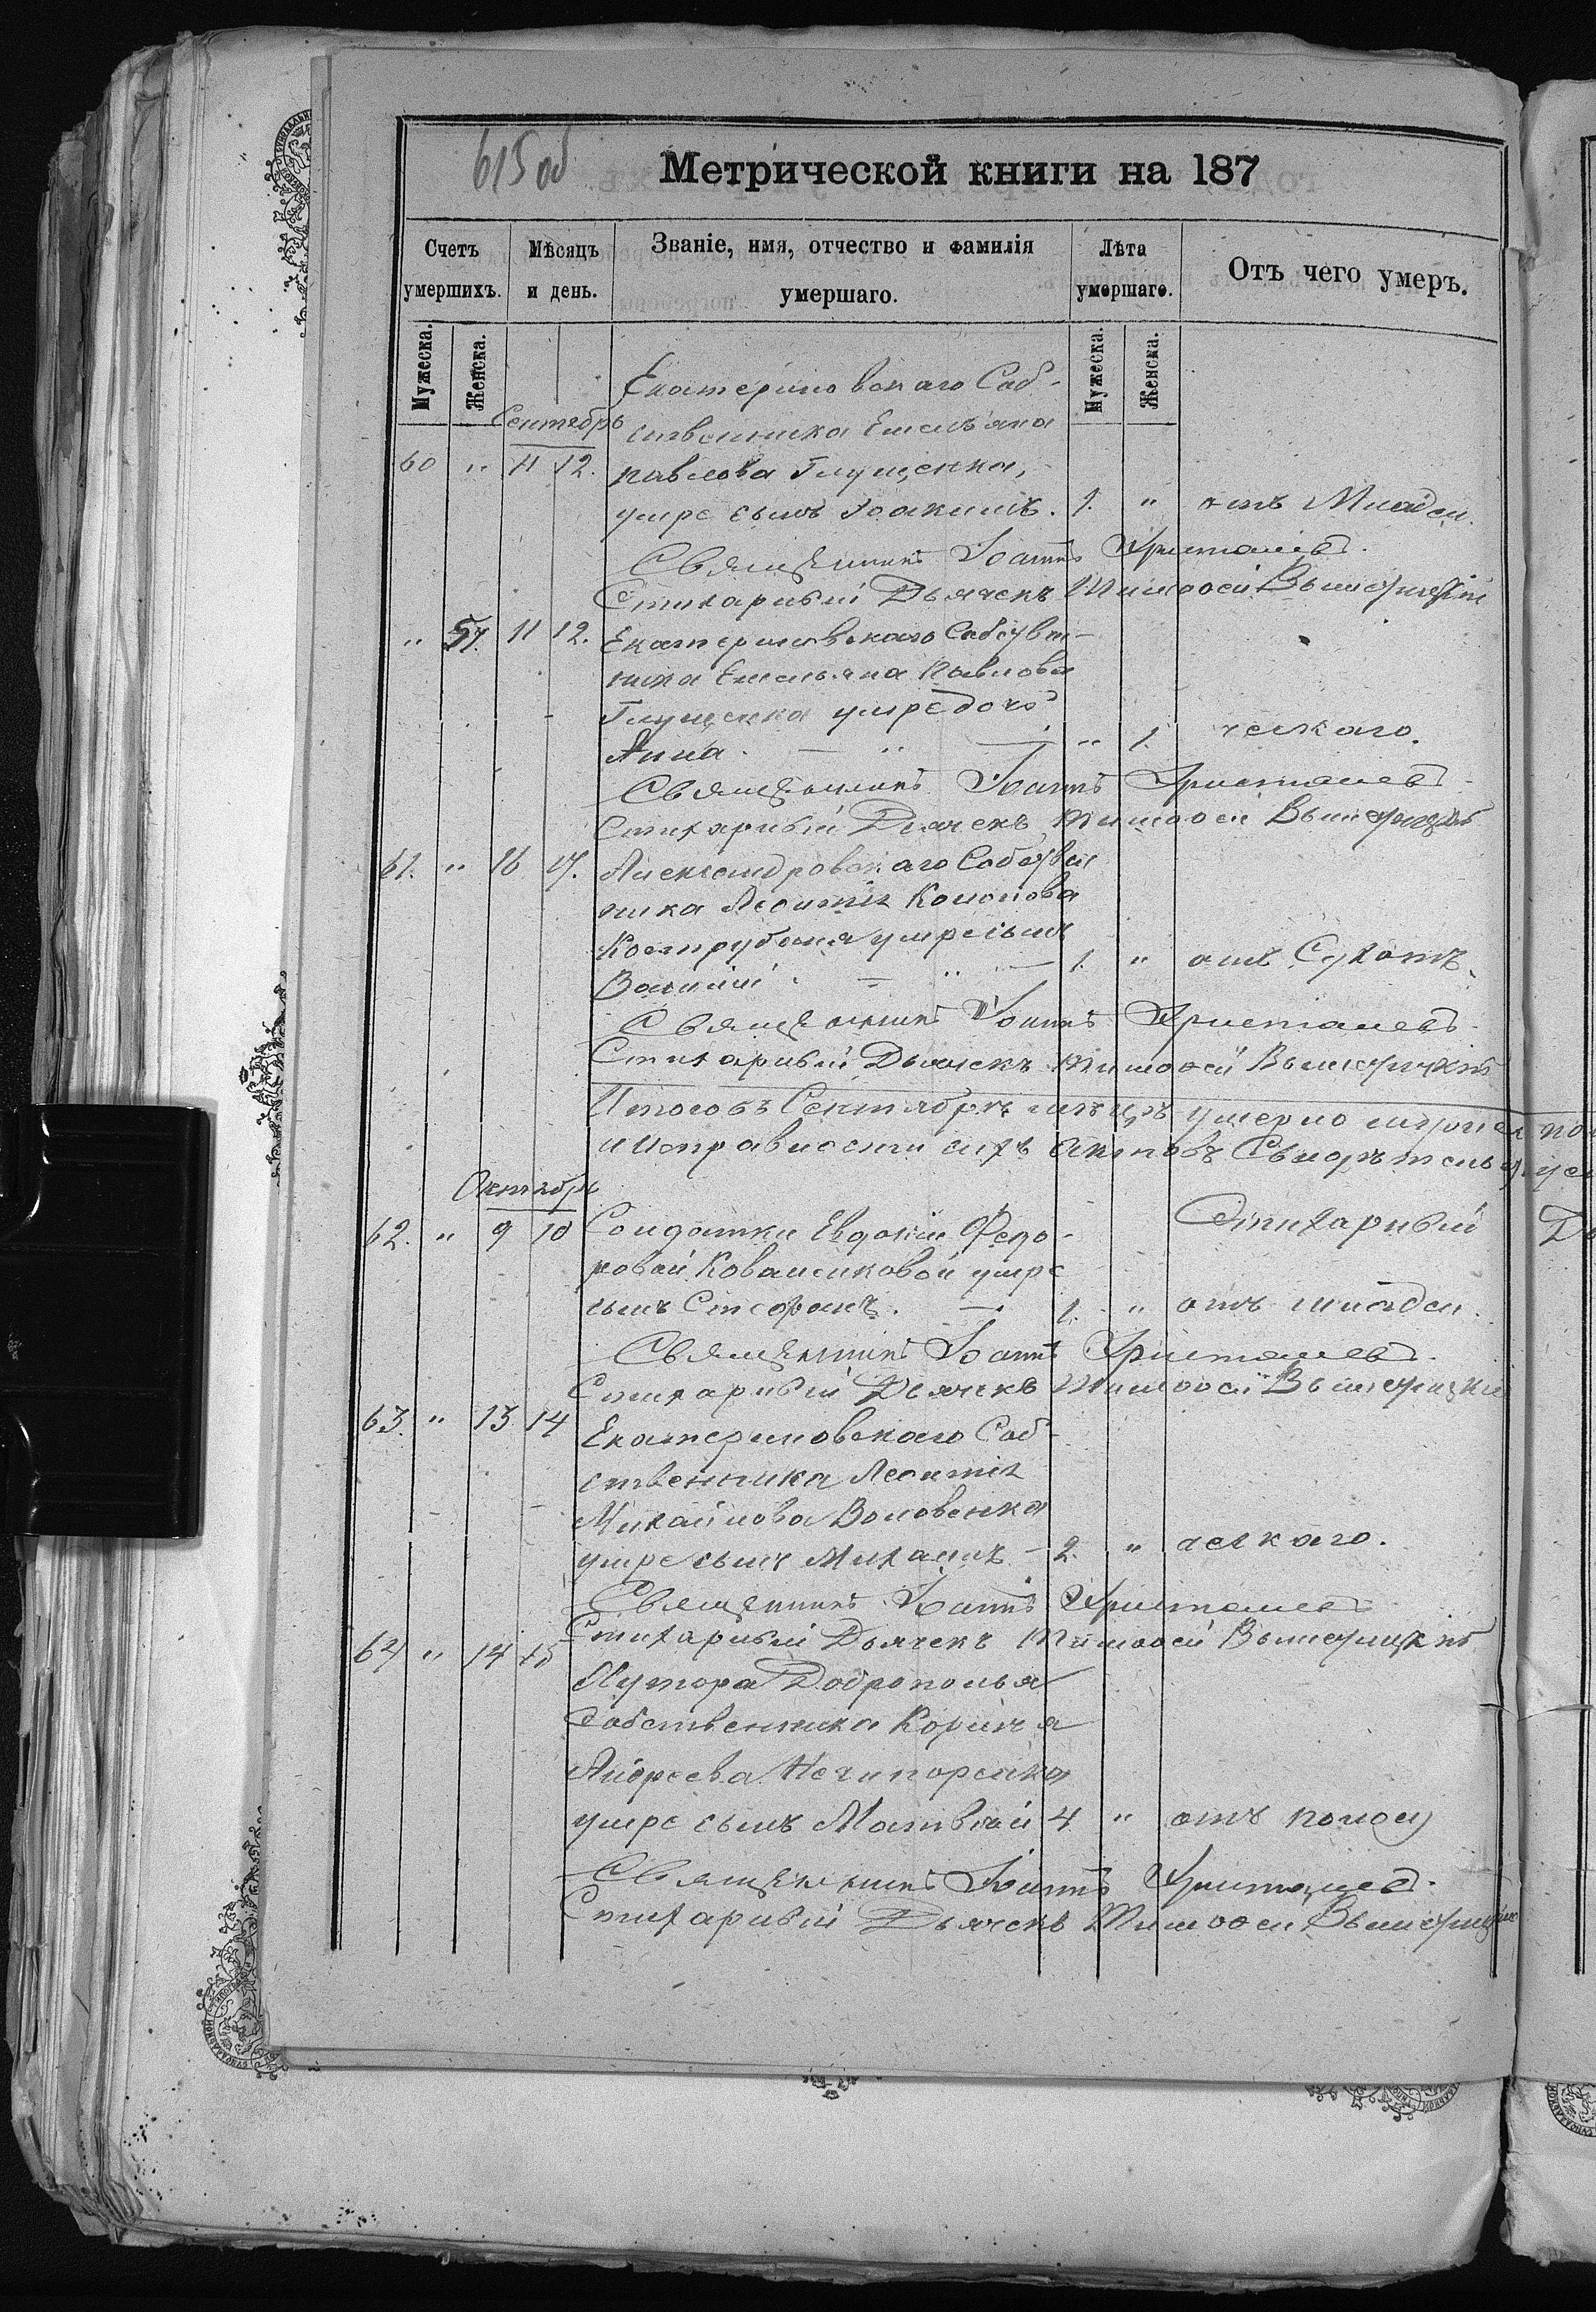 615 об
Метрической книги на 187
Счетъ умершихъ.
Мѣсяцъ и день.
Званіе, имя, отчество и фамилія умершаго.
Лѣта умершаго.
Отъ чего умеръ.
Мужеска.
Женска.
Мужеска.
Женска.
Екатериновскаго Соб-
Сентябрь
ственника Емельяна
60 " 11 12. Павлова Глущенка,
умре сынъ Іоакимъ. 1. " отъ Младен.
Священникъ Іоаннъ Христалевъ.
Стихарный Дьячекъ Тимоѳей
" 57. 11 12. Екатериновскаго Собствен-
ника Емельяна Павлова
Глущенка умре дочь
Анна. — " — " 1. ческаго.
Священникъ Іоаннъ Христалевъ.
Стихарный Дьячекъ Тимоѳей
61. " 16 17. Александровскаго Собствен
ника Леонтія Кононова
умре сынъ
Василій. — " — 1. " отъ Сухотъ.
Священникъ Іоаннъ Христалевъ.
Стихарный Дьячекъ Тимоѳей
Итого въ Сентябрѣ мѣсяцѣ умерло
исправности сихъ актовъ
Октябрь
Стихарный
62. " 9 10 Солдатки Евдокіи Федо-
ровой Коваликовой умре
сынъ Стефанъ. — 1. " отъ младен.
Священникъ Іоаннъ Христалевъ.
Стихарный Дьячекъ Тимоѳей
63. " 13 14 Екатериновскаго Соб-
ственника Леонтія
Михайлова Воловенка
умре сынъ Михаилъ — 2. " ческаго.
Священникъ Іоаннъ Христалевъ
Стихарный Дьячекъ Тимоѳей
64 " 14 15
Хутора Доброполья
Собственника Корнія
Андреева Нечипоренка
умре сынъ Матвѣй 4 " отъ
Священникъ Іоаннъ Христалевъ.
Стихарный Дьячекъ Тимоѳей